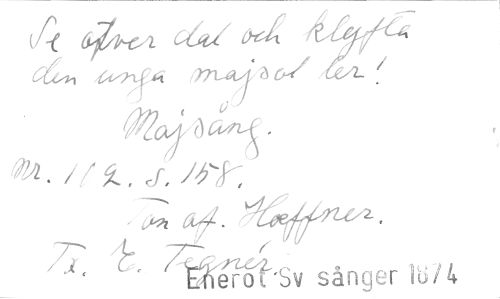 Se öfver dal och klyfta
den unga majsol ler!
Majsång.
Nr. 112. s. 158.
Ton af. Hæffner.
Tx. E. Tegnér.
Enerot Sv sånger 1874